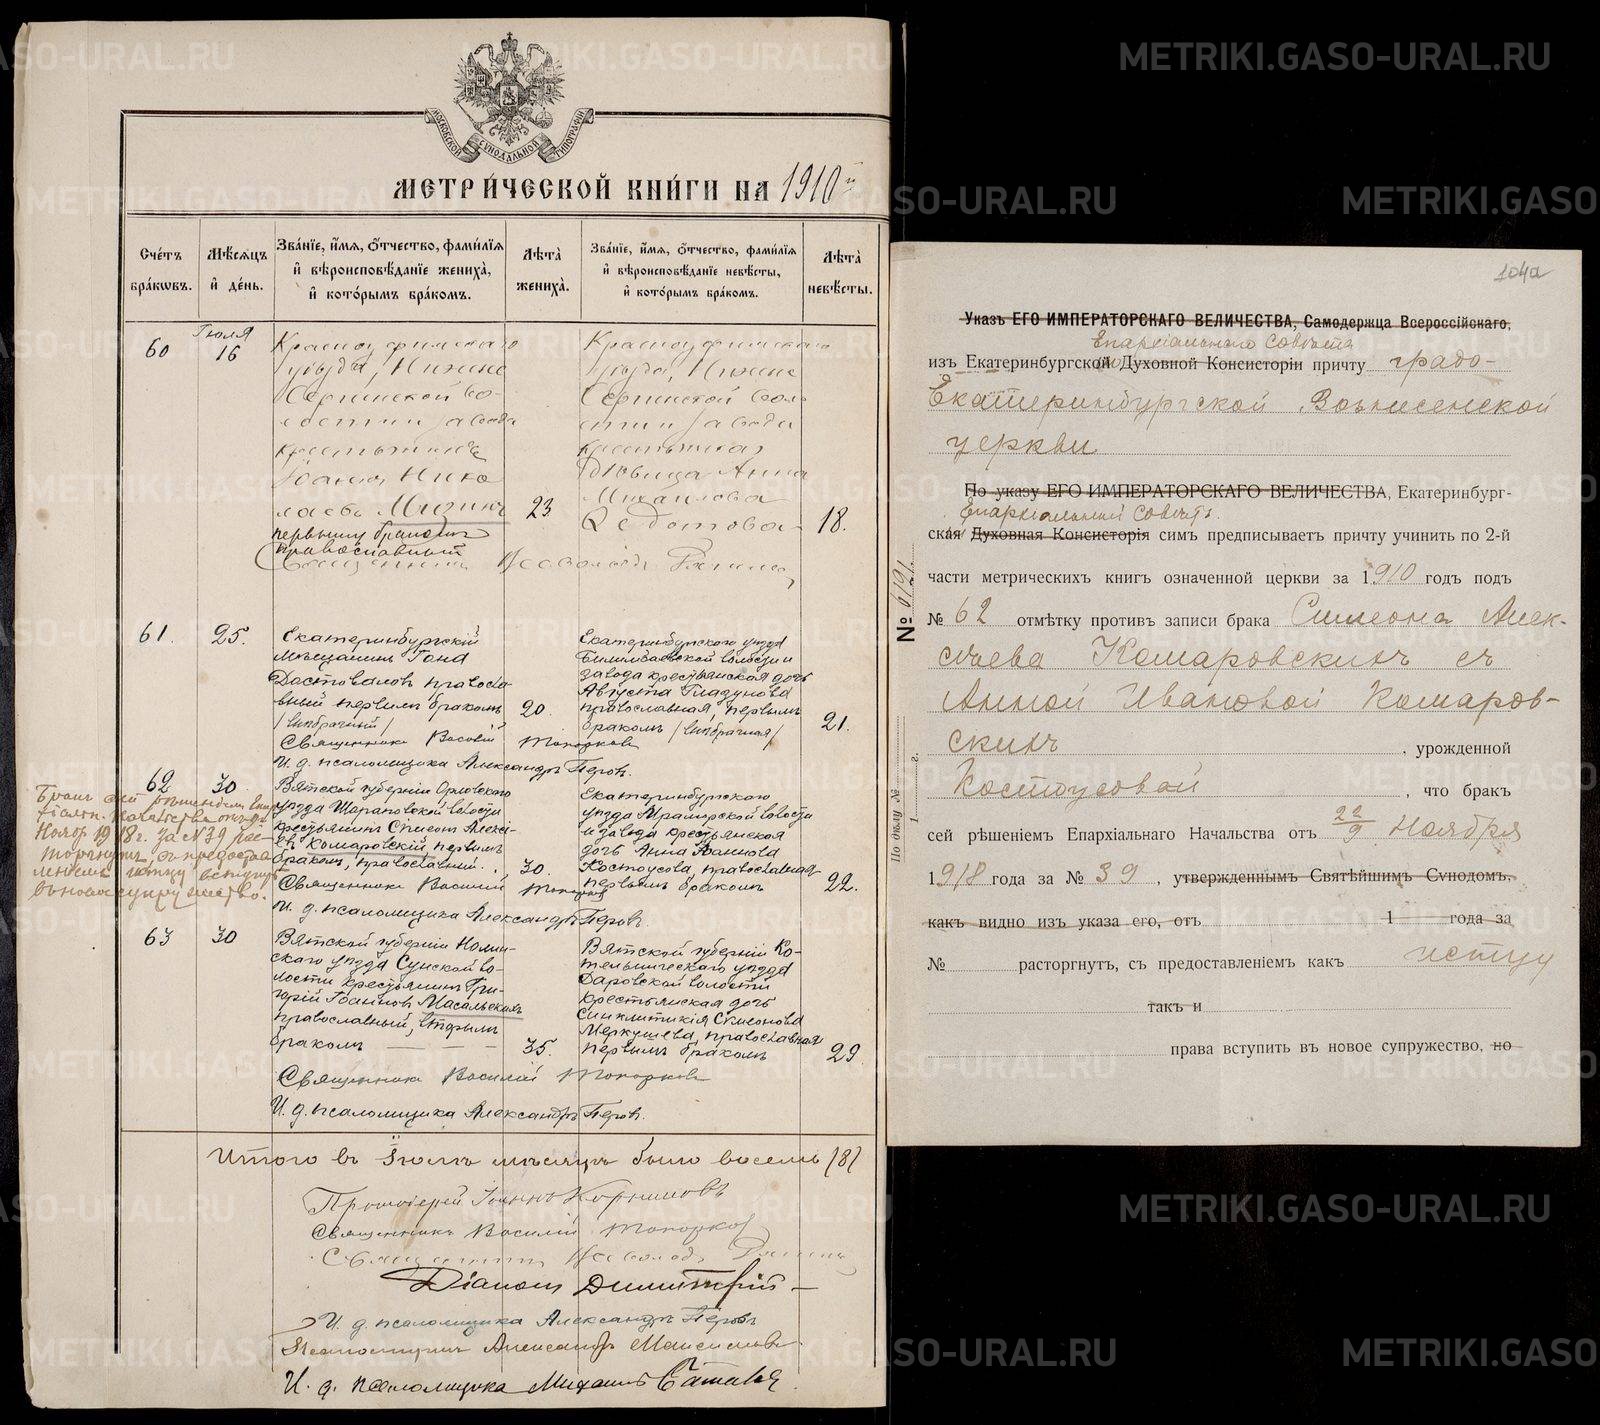 МОСКОВСКОЙ СѴНОДАЛЬНОЙ ТИПОГРАФІИ
МЕТРИ́ЧЕСКОЙ КНИ́ГИ НА 1910 й
Сче́тъ бра́кѡвъ.
Мѣ́сяцъ и҆ де́нь.
Зва́нїе, и҆́мѧ, ѻ҆́тчество, фами́лїѧ и҆ вѣроисповѣ́данїе жениха̀, и҆ кото́рымъ бра́комъ.
Лѣта̀ жениха̀.
Зва́нїе, и҆́мѧ, ѻ҆́тчество, фами́лїѧ и҆ вѣроисповѣ́данїе невѣ́сты, и҆ кото́рымъ бра́комъ.
Лѣта̀ невѣ́сты.
60
Іюля
16
Красноуфимскаго
уѣзда, Нижне
Сергинской во-
лостии завода
крестьянинъ
Іоаннъ Нико
лаевъ Мизинъ
первымъ бракомъ
православный
23
Красноуфимскаго
уѣзда, Нижне
Сергинской воло
стии завода
крестьянская
Дѣвица Анна
Михаилова
Ѳедотова
18.
Священникъ Всеволодъ
61.
25.
Екатеринбургскій
мѣщанинъ
Достоваловъ правосла-
вный первымъ бракомъ
/внѣбрачный/
20.
Екатеринбургскаго уѣзда
Билимбаевской волости и
завода крестьянская дочь
Августа Гладунова
православная, первымъ
бракомъ /внѣбрачная/
21.
Священникъ Василій Топорковъ
И. д. псаломщика Александръ Перовъ.
62
30.
Вятской губерніи Орловскаго
уѣзда Шарановской волости
крестьянинъ Сѵмеонъ Алексі-
евъ Комаровскій, первымъ
бракомъ, православный.
30.
Екатеринбургскаго
уѣзда Мраморской волости
и завода крестьянская
дочь Анна Іоаннова
Костоусова, православная
первымъ бракомъ
22.
Священникъ Василій Топорковъ
И. д. псаломщика Александръ Перовъ.
Бракъ сей рѣшеніемъ Епар
хіальн. Начальства отъ 22/9
Нояб. 1918 г. за № 39 рас-
торгнутъ, съ предостав
леніемъ истцу вступить
въ новое супружество.
63
30
Вятской губерніи Нолин-
скаго уѣзда Сунской во-
лости крестьянинъ Гри-
горій Іоанновъ Масальскихъ
православный, вторымъ
бракомъ
35.
Вятской губерніи Ко-
тельническаго уѣзда
Даровской волости
крестьянская дочь
Синклитикія Сѵмеонова
Меркушева, православная
первымъ бракомъ
29
Священникъ Василій Топорковъ
И. д. псаломщика Александръ Перовъ.
Итого въ Іюлѣ мѣсяцѣ было восемь /8/
Протоіерей Іоаннъ
Священникъ Василій Топорковъ
Священникъ Всеволодъ
Діаконъ Димитрій
И. д. псаломщика Александръ Перовъ
Псаломщикъ Александръ
И. д. псаломщика Михаилъ
104а
Указъ ЕГО ИМПЕРАТОРСКАГО ВЕЛИЧЕСТВА, Самодержца Всероссійскаго,
Епархіальнаго Совѣта
изъ Екатеринбургской Духовной Консисторіи причту градо-
Екатеринбургской Вознесенской
церкви
По указу ЕГО ИМПЕРАТОРСКАГО ВЕЛИЧЕСТВА, Екатеринбург-
Епархіальный Совѣтъ
ская Духовная Консисторія симъ предписываетъ причту учинить по 2-й
части метрическихъ книгъ означенной церкви за 1910 годъ подъ
№ 62 отмѣтку противъ записи брака Симеона Алек-
сѣева Комаровскихъ съ
Анной Ивановой Комаров-
скихъ, урожденной
Костоусовой, что бракъ
сей рѣшеніемъ Епархіальнаго Начальства отъ 22/9 Ноября
1918 года за № 39, утвержденнымъ Святѣйшимъ Сѵнодомъ,
какъ видно изъ указа его, отъ 1 года за
№ расторгнутъ, съ предоставленіемъ какъ истцу
такъ и
права вступить въ новое супружество, но
№ 6191
По оклу №
1 г.
METRIKI.GASO-URAL.RU